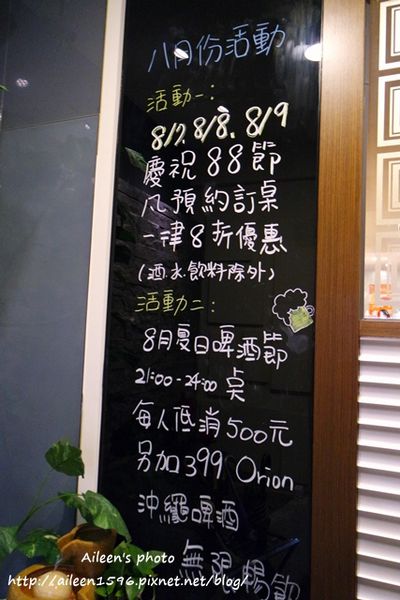 八月份活動
活動一：
8/7. 8/8. 8/9
慶祝88節
凡預約訂桌
一律8折優惠
(酒水飲料除外)
活動二：
8月夏日啤酒節
21:00-24:00 桌
每人低消500元
另加399 Orion
沖繩啤酒
無限暢飲
Aileen's photo
http://aileen1596.pixnet.net/blog/